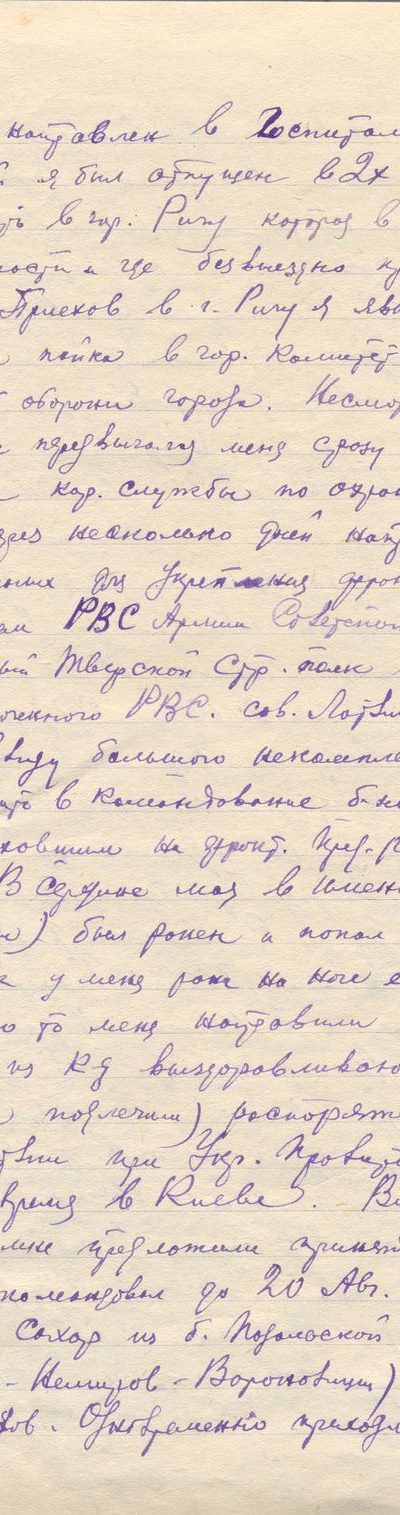 направлен в Госпитал
я был отпущен в 2х
в гор. Ригу которая в
ности и где безвыездно
Приехав в г. Ригу я яви
пайка в гор. Комитет
обороны города. Несмот
меня сразу
кар. службы по охран
через несколько дней нап
для укрепления фрон
РВС Армии Советской
ый Тверской Стр. полк
оченного РВС. сов. Латви
ввиду большого некомпле
ить в командование б-на
на фронт. Пред. р
В середине мая в имен
) был ранен и попал
у меня рана на ноге
о то меня направили
из КД выздоравливаю
подлечили) распоряж
при Укр. Правит
время в Киеве. В
мне предложили принят
командовал до 20 Авг.
Сахар из б. Подольской
- Немиров - Вороновицы)
ков. Одновременно приходи